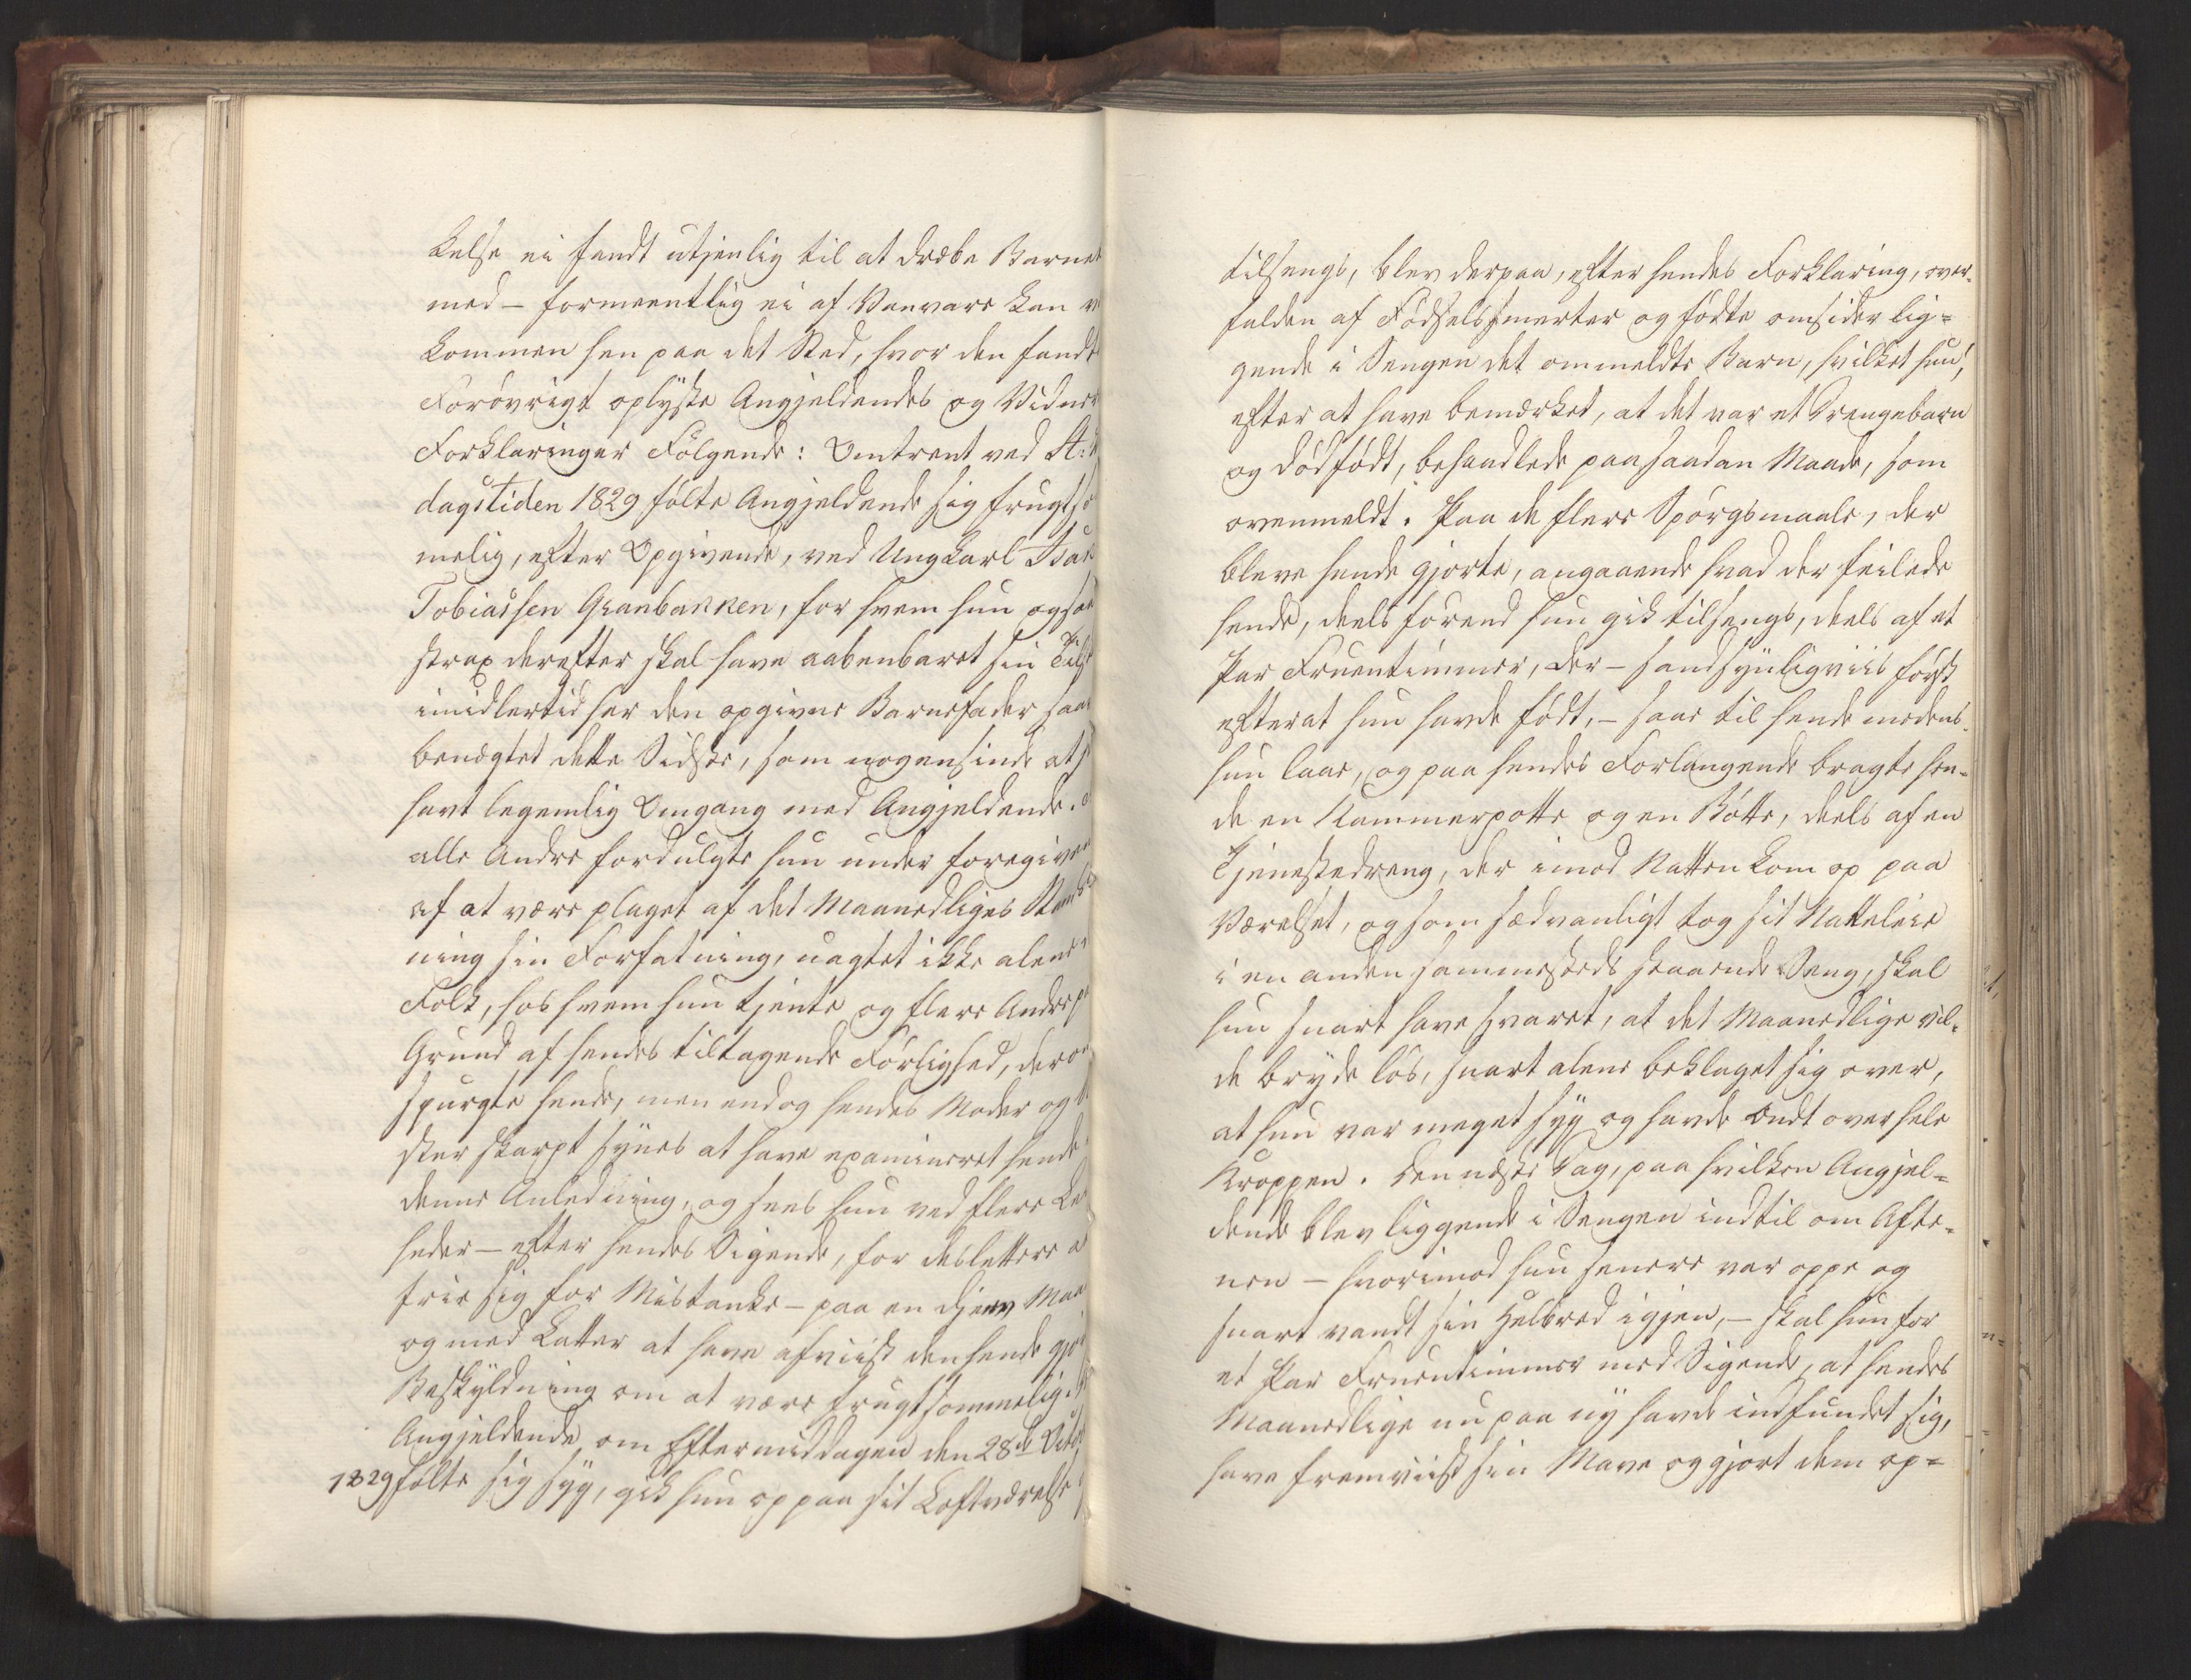 kelse ei fandt utjenlig til at dræbe Barnet
med – formeentlig ei af Vanvare kan
kommen hen paa det Sted, hvor den fandt
Forøvrigt oplyste Angjeldendes og Vidner
Forklaringer Følgende: Omtrent ved St:
dagstiden 1829 følte Angjeldende sig frugtso
melig, efter Opgivende, ved Ungkarl Isak
Tobiassen Granbakken, for hvem hun ogsaa
strax derefter skal have aabenbaret sin Tilst
imidlertid har den opgivne Barnefader saa
benægtet dette Sidste, som nogensinde at
havt legemlig Omgang med Angjeldende.
alle Andre fordulgte hun under foregiven
af at være plaget af det Maanedliges Stands
ning sin Forfatning, uagtet ikke alene
Folk, hos hvem hun tjente og flere Andre p
Grund af hendes tiltagende Førlighed, dero
spurgte hende, men endog hendes Moder og
ster skarpt synes at have examineret hende
denne Anledning, og sees hun ved flere Le
heder – efter hendes Sigende, for deslettere a
frie sig for Mistanke – paa en djerv Maa
og med Latter at have afviist den hende gjo
Beskyldning om at være frugtsommelig.
Angjeldende om Eftermiddagen den 28de Octob
1829 følte sig syg, gik hun op paa sit Loftværelse
tilsengs, blev derpaa, efter hendes Forklaring, over-
falden af Fødselssmerter og fødte omsider lig=
gende i Sengen det ommeldte Barn, hvilket hun,
efter at have bemærket, at det var et Drengebarn
og dødfødt, behandlede paa saadan Maade, som
ovenmeldt. Paa de flere Spørgsmaale, der
bleve hende gjorte, angaaende hvad der feilede
hende, deels førend hun gik tilsengs, deels af et
Par Fruentimmer, der – sandsynligviis først
efterat hun havde født, – saae til hende medens
hun laae, og paa hendes Forlangende bragte hen-
de en Kammerpotte og en Bøtte, deels af en
Tjenestedreng, der imod Natten kom op paa
Værelset, og som sædvanligt tog sit Natteleie
i en anden sammesteds staaende Seng, skal
hun snart have svaret, at det Maanedlige vil-
de bryde løs, snart alene beklaget sig over,
at hun var meget syg og havde ondt over hele
Kroppen. Den næste Dag, paa hvilken Angjel=
dende blev liggende i Sengen indtil om Afte=
nen – hvorimod hun senere var oppe og
snart vandt sin Helbred igjen, – skal hun for
et Par Fruentimmer med Sigende, at hendes
Maanedlige nu paa ny havde indfundet sig,
have fremviist sin Mave og gjort dem op=